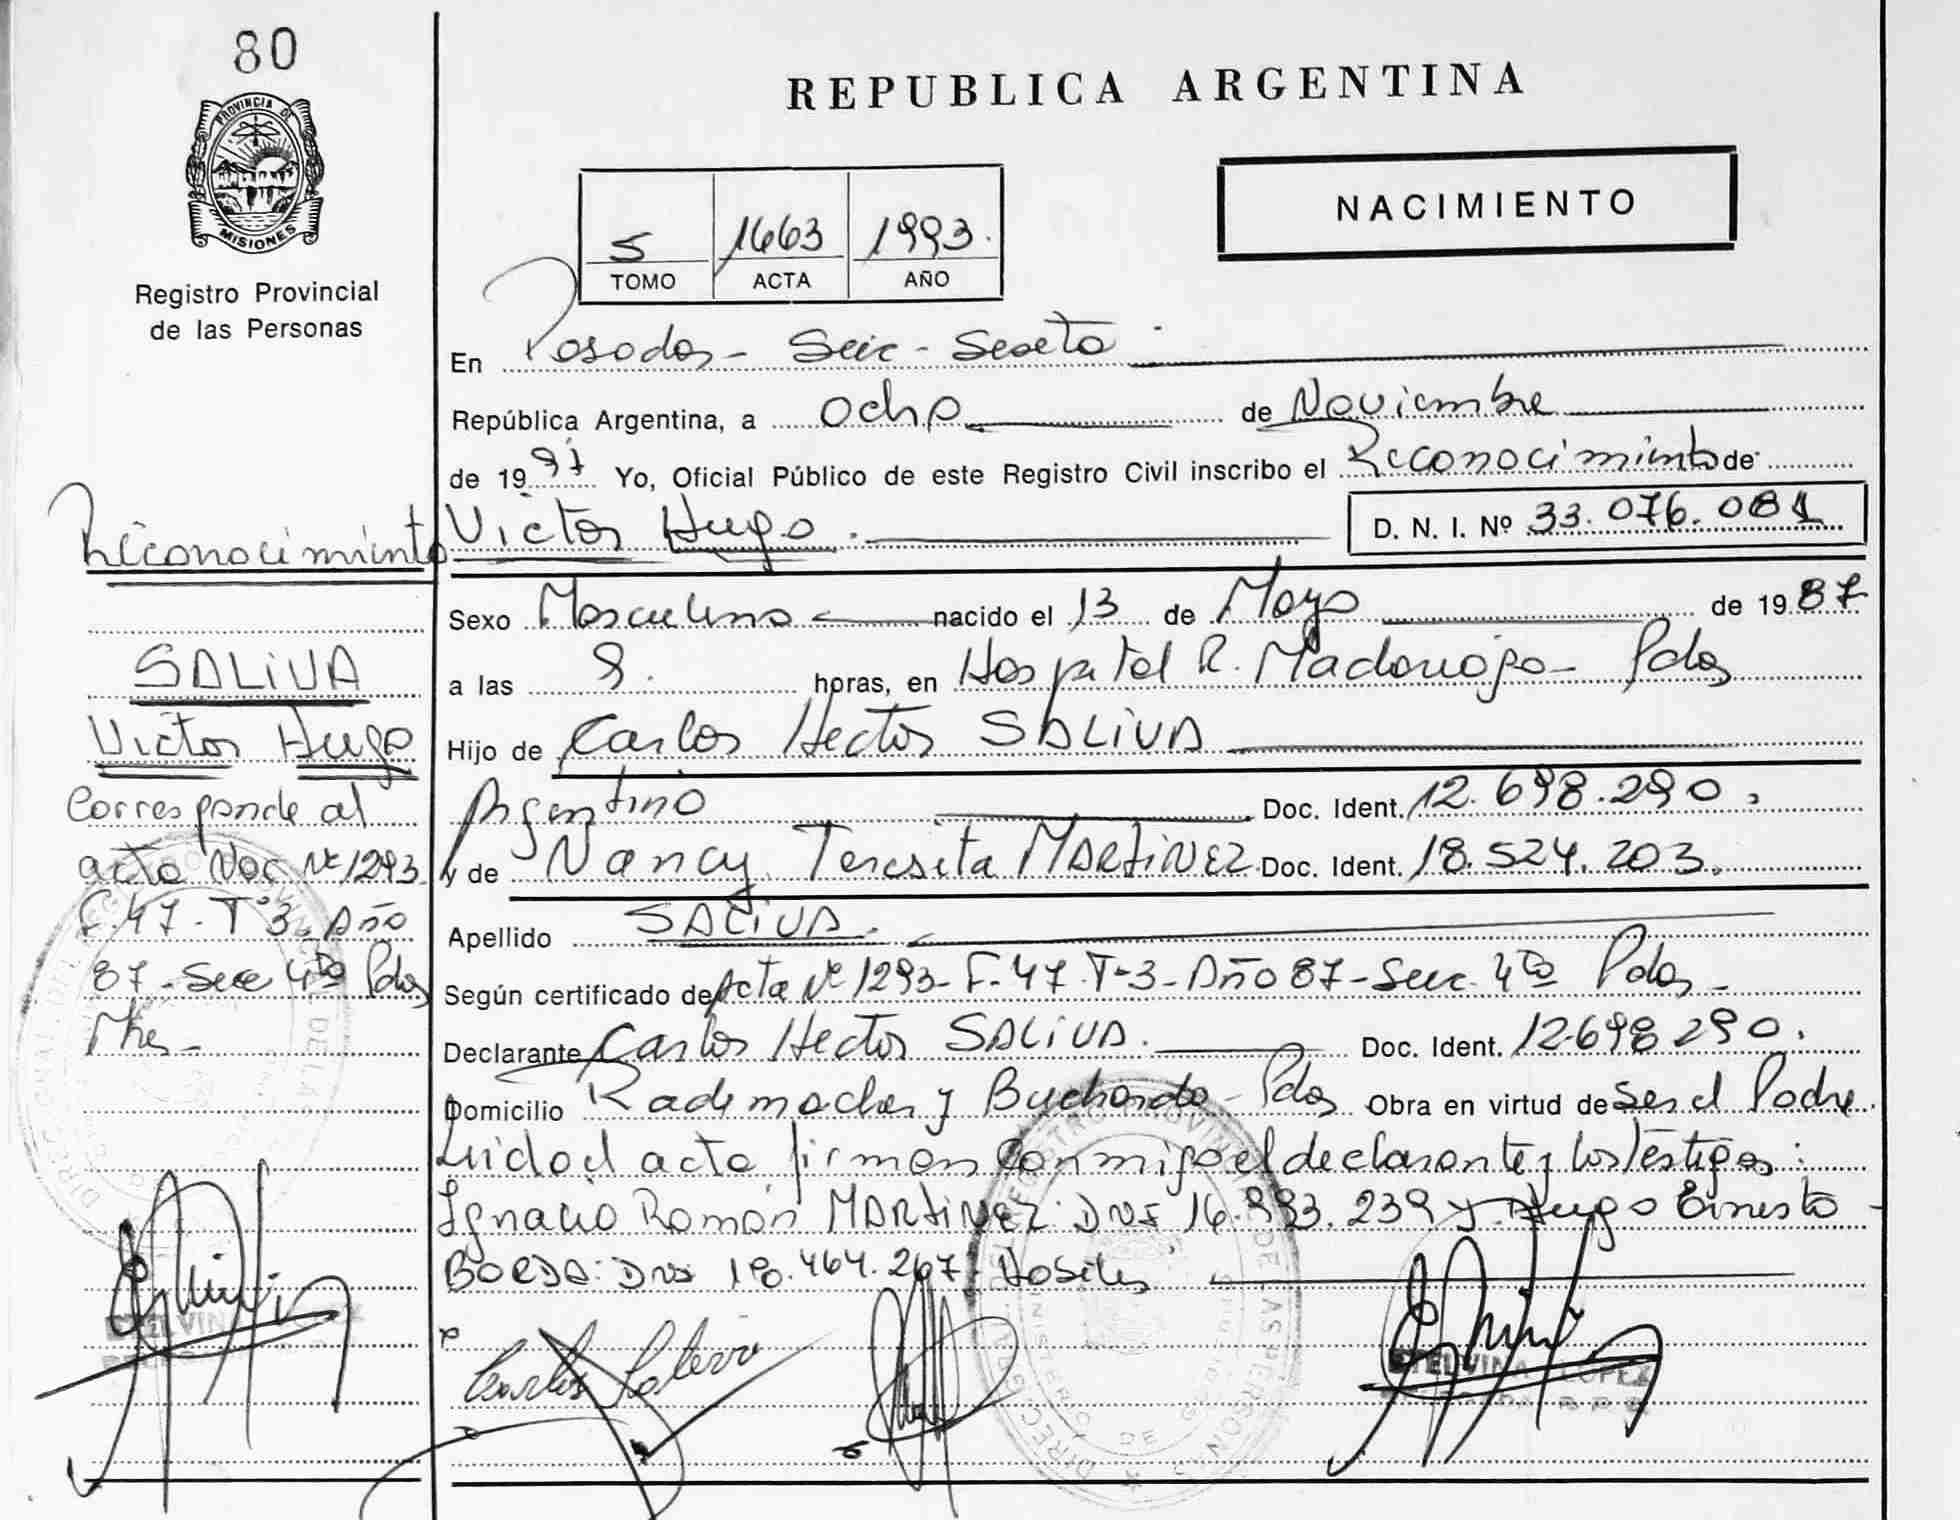 80
PROVINCIA DE
MISIONES
Registro Provincial
de las Personas
REPUBLICA ARGENTINA
NACIMIENTO
5 1663 1993.
TOMO ACTA AÑO
En Posadas - Secc - Sexta
República Argentina, a ocho de Noviembre
de 19 93 Yo, Oficial Público de este Registro Civil inscribo el Reconocimiento de
Victor Hugo. D. N. I. Nº 33.076.081
Sexo Masculino nacido el 13 de Mayo de 19 87
a las 9. horas, en Hospital R. Madariaga - Pdas
Hijo de Carlos Hector SALIVA
Argentino Doc. Ident. 12.698.290.
y de Nancy Teresita MARTiNEZ Doc. Ident. 18.524.203.
Apellido SALiVA.
Según certificado de Acta Nº 1293 - F. 47. T-3 - Año 87 - Secc. 4ta Pdas -
Declarante Carlos Hector SALiVA. Doc. Ident. 12.698.290.
Domicilio Rademacher y Buchardo - Pdas Obra en virtud de ser el Padre.
Leida el acta firman conmigo el declarante y los testigos:
Ignacio Ramón MARTiNEZ: DNI 16.993.239 y Hugo Ernesto
BORDA: DNI 18.464.267. Habiles
Carlos
STELVINA LOPEZ
Reconocimiento
SALiVA
Victor Hugo
Corresponde al
acta Nac Nº 1293
F. 47 - Tº 3. Año
87 - Secc 4ta Pdas
Mnes -
STELVINA